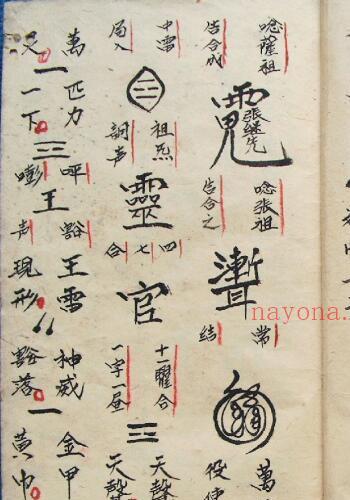 唸薩祖
告合成
張繼先
唸張祖
告合之
聻
常
結
萬
役使
中雷
局入
三
祖炁
詞声
靈
四七合
官
十一曜合
一字一
三
天
天
萬匹力
又一下
一
三
呼
嘭
王
谿
声
王雷
現形
神威
谿落
一
金甲
黃巾
nayona.